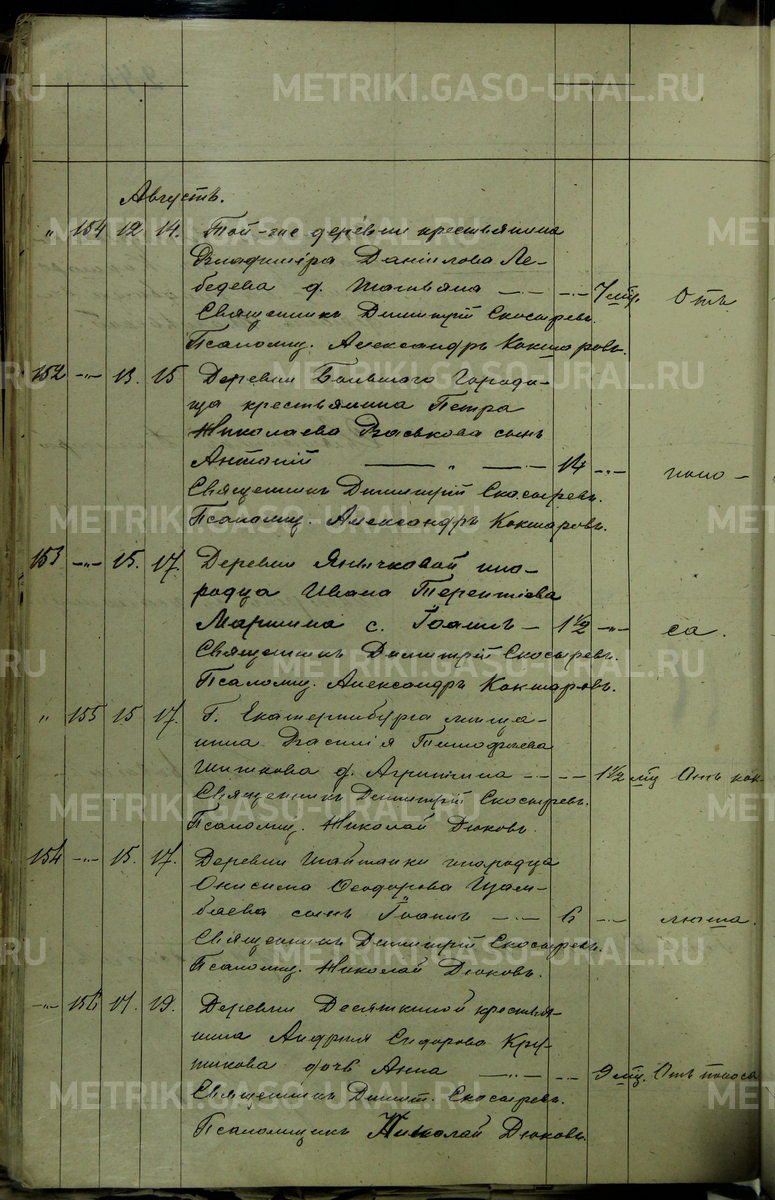 Августъ.
" 154 12 14. Той-же деревни крестьянина
Владиміра Даніилова Ле-
бедева д. Татьяна — 7 мц. Отъ
Священникъ Димитрій Скосыревъ.
Псаломщ. Александръ Кокшаровъ.
152 -"- 13. 15 Деревни Большого Городи-
ща крестьянина Петра
Николаева Васькова сынъ
Антоній — " — 14 -"- поно-
Священникъ Димитрій Скосыревъ.
Псаломщ. Александръ Кокшаровъ.
153 -"- 15. 17. Деревни Янычковой ино-
родца Ивана Терентіева
Маршина с. Іоаннъ — 1 1/2 -"- са.
Священникъ Димитрій Скосыревъ.
Псаломщ. Александръ Кокшаровъ.
" 155 15 17. Г. Екатеринбурга мѣща-
нина Василія Тимофѣева
Шишкова д. Агриппина — 1 1/2 мц Отъ кок-
Священникъ Димитрій Скосыревъ.
Псаломщ. Николай Дюковъ.
154 -"- 15. 17. Деревни Шайтанки инородца
Онисима Ѳеодорова
сынъ Іоаннъ — 6 -"- люша.
Священникъ Димитрій Скосыревъ.
Псаломщ. Николай Дюковъ.
-"- 156 17. 19. Деревни Десяткиной крестья-
нина Андрея Сидорова Кру-
тикова дочь Анна — 9 мц. Отъ поноса
Священникъ Димит. Скосыревъ.
Псаломщикъ Николай Дюковъ.
METRIKI.GASO-URAL.RU